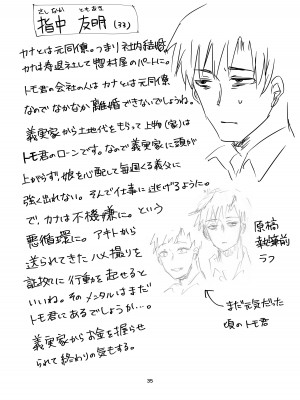 さしなか ともあき
指中 友明 (33)
カナとは元同僚。つまり社内結婚。
カナは寿退社して惣村屋のパートに。
トモ君の会社の人はカナとは元同僚
なのでなかなか離婚できないでしょうね。
義実家から土地代をもらって上物(家)は
トモ君のローンです。なので義実家に頭が
上がらず。娘を心配して毎週くる義父に
強く出れない。そんで仕事に逃げるように。
で、カナは不機嫌に。という
悪循環に。アキトから
送られてきたハメ撮りを
証拠に行動を起せると
いいね。そのメンタルはまだ
トモ君にあるでしょうか…。
義実家からお金を握らせ
られて終わりの気もする。
原稿
執筆前
ラフ
まだ元気だった
頃のトモ君
35